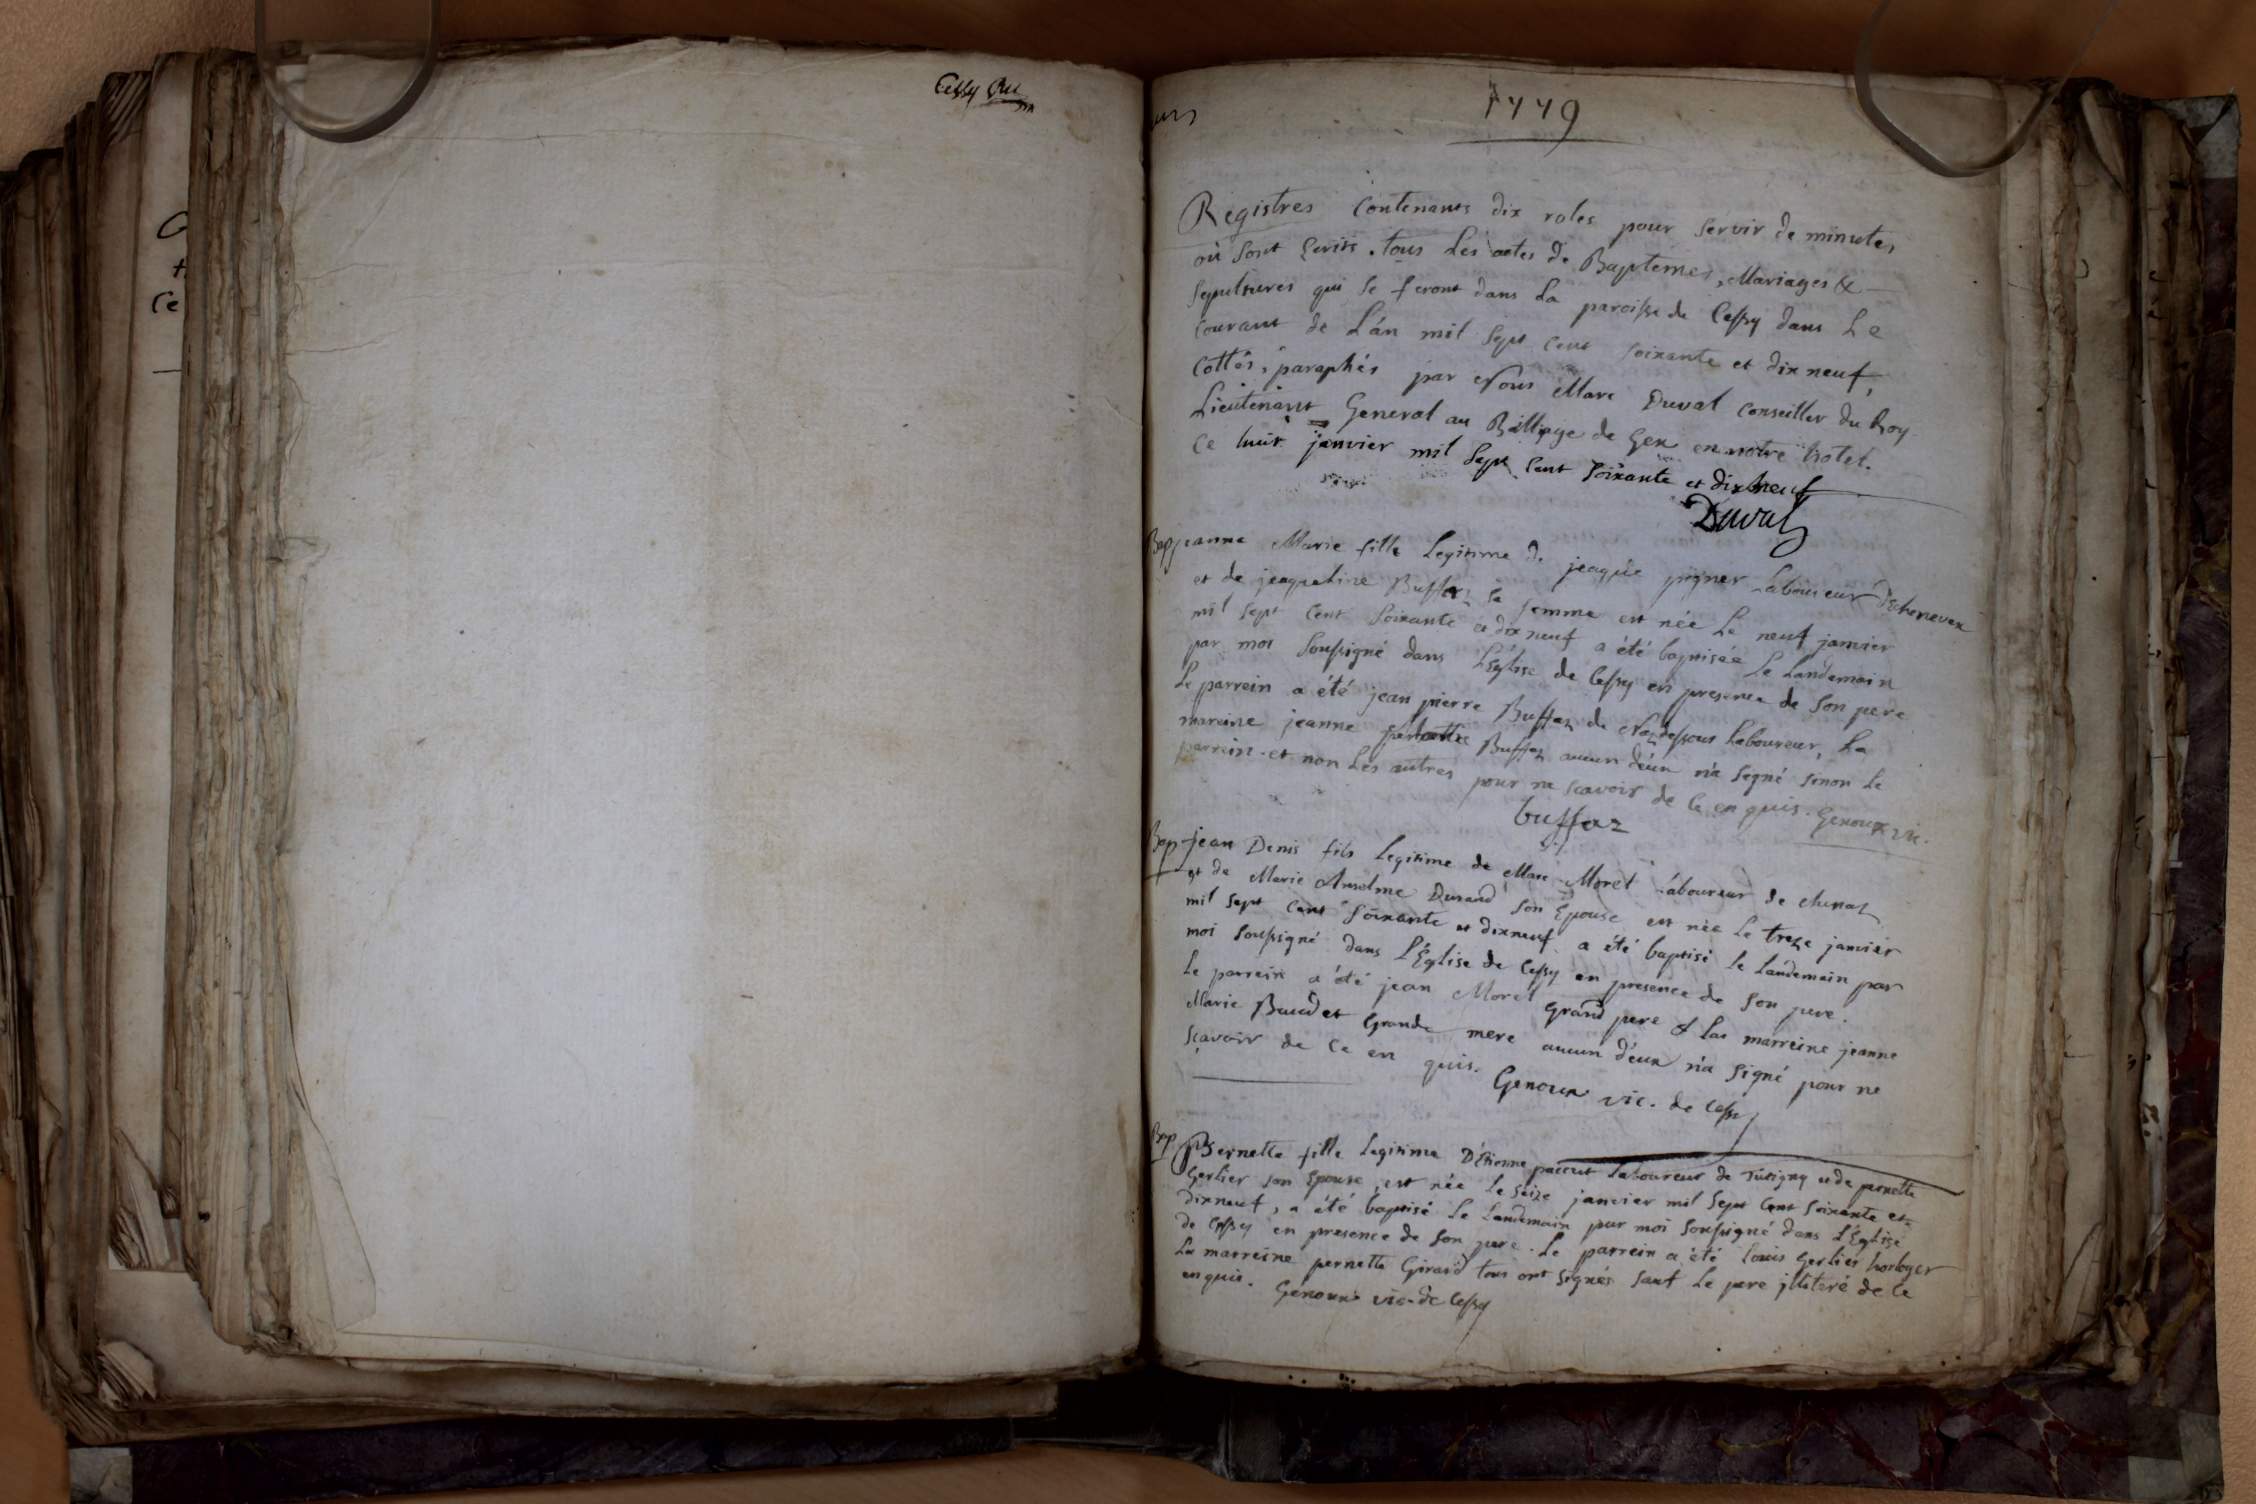 Cessy
1779
Registres Contenants dix roles pour servir de minutes,
où sont Ecrits tous Les actes de Baptemes, Mariages &
Sepultures qui se feront dans La paroisse de Cessy dans Le
courant de L'an mil sept cent soixante et dix neuf,
Cottés, paraphés par Nous Marc Duval Conseiller du Roy
Lieutenant General au Balliage de Gex en notre hotel.
Ce huit janvier mil sept cent soixante et dix neuf
Duval
Bap jeanne Marie fille Legitime de jeaque pigner Laboureur d'echenevex
et de jeaqueline Buffaz sa femme est née Le neuf janvier
mil sept cent soixante et dix neuf a été baptisée Le Landemain
par moi soussigné dans L'Eglise de Cessy en presence de son pere
Le parrein a été jean pierre Buffaz de Nazdessous Laboureur, La
mareine jeanne pernette Buffaz aucun d'eux n'a signé sinon Le
parrein et non Les autres pour ne scavoir de ce en quis. Genoux vic.
buffaz
Bap jean Denis fils Legitime de Marc Morel Laboureur de chunaz
et de Marie Anselme Durand son Epouse est née Le treze janvier
mil sept cent soixante et dixneuf a été baptisé le Landemain par
moi soussigné dans L'Eglise de Cessy en presence de son pere.
Le parrein a été jean Morel Grand pere & La marreine jeanne
Marie Baudet Grande mere aucun d'eux n'a signé pour ne
sçavoir de ce en quis. Genoux vic. de Cessy
Bap Pernette fille Legitime D'Etienne Laboureur de Tutigny et de pernette
Gerlier son Epouse, est née Le seize janvier mil sept cent soixante et
dixneuf, a été baptisé Le Landemain par moi soussigné dans L'Eglise
de Cessy en presence de son pere. Le parrein a été Louis Gerlier horloger
La marreine pernette Girard tous ont signés sauf Le pere illiteré de ce
en quis. Genoux vic. de Cessy